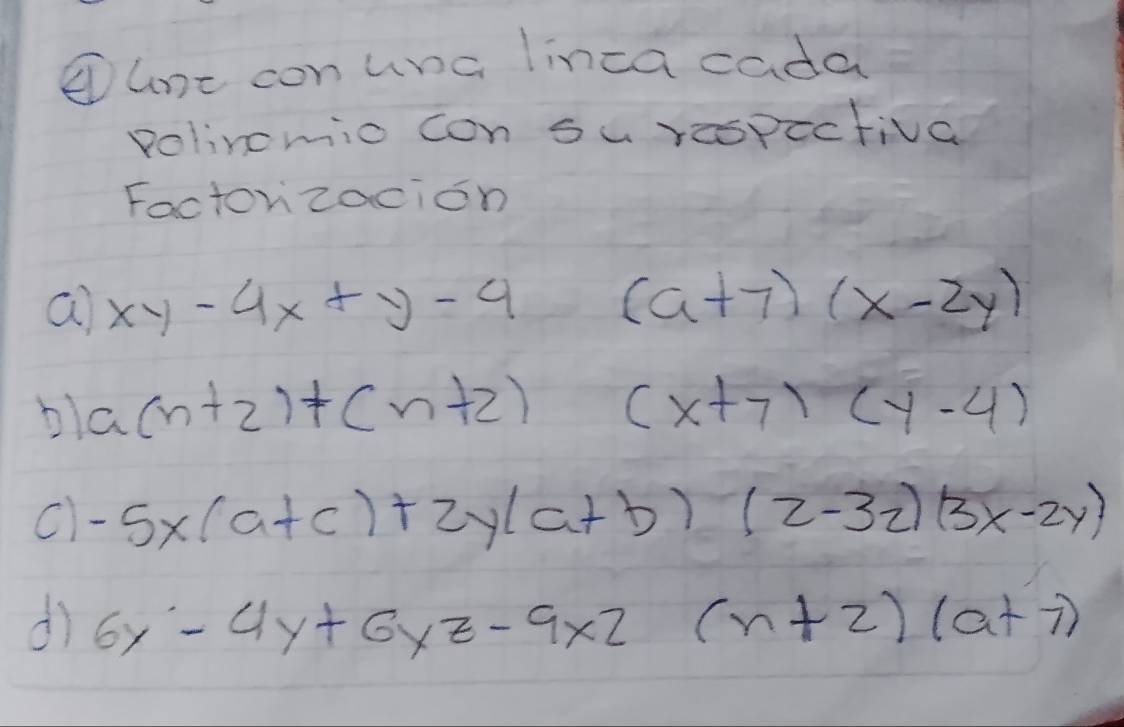 ④ Une con una línea cada
polinomio con su respectiva
Factorización
a) xy - 4x + y - 4 (a+7) (x-2y)
b) a(n+2)+(n+2) (x+7) (y-4)
c) -5x(a+c)+2y(a+b) (2-3z)(3x-2y)
d) 6x - 4y + 6yz - 9xz (n+2) (a+7)